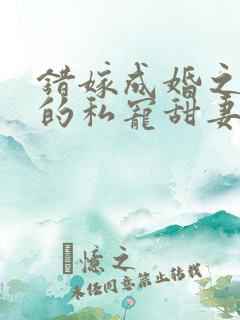 错嫁成婚之
的私宠甜妻
憶之
未任同意禁止转载